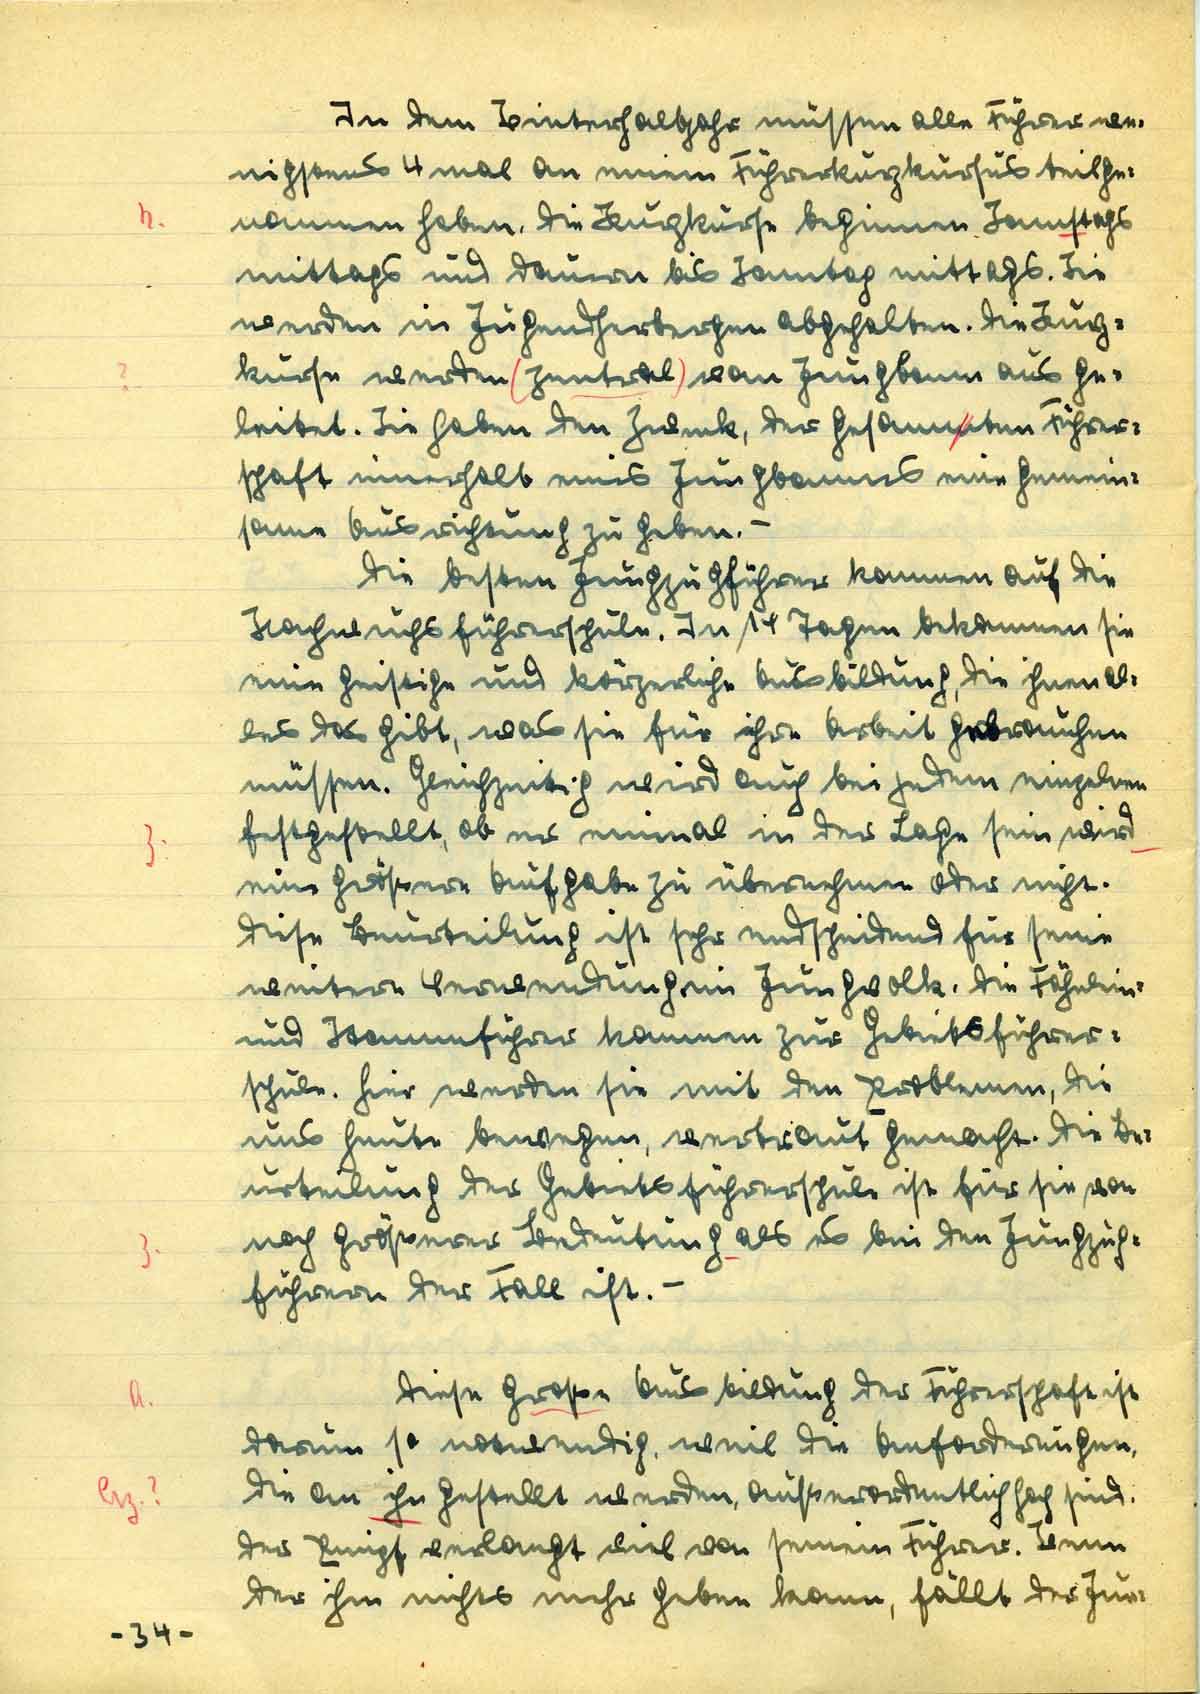 In dem Winterhalbjahr müssen alle Führer we-
nigstens 4 mal an einem Führerkurzkursus teilge-
h.
nommen haben. Die Kurzkurse beginnen Samstags
mittags und dauern bis Sonntag mittags. Sie
werden in Jugendherbergen abgehalten. Die Kurz-
?
kurse werden (zentral) vom Jungbann aus ge-
leitet. Sie haben den Zweck, der gesammten Führer-
schaft innerhalb eines Jungbannes eine gemein-
same Ausrichtung zu geben. –
Die besten Jungzugführer kommen auf die
Nachwuchsführerschule. In 14 Tagen bekommen sie
eine geistige und körperliche Ausbildung, die ihnen al-
les das gibt, was sie für ihre Arbeit gebrauchen
müssen. Gleichzeitig wird auch bei jedem einzelnen
festgestellt, ob er einmal in der Lage sein wird
z.
eine größere Aufgabe zu übernehmen oder nicht.
Diese Beurteilung ist sehr endscheidend für seine
weitere Verwendung im Jungvolk. Die Fähnlein-
und Stammführer kommen zur Gebietsführer-
schule. Hier werden sie mit den Problemen, die
uns heute bewegen, vertraut gemacht. Die Be-
urteilung der Gebietsführerschule ist für sie von
noch größerer Bedeutung als es bei den Jungzug-
z.
führern der Fall ist. –
Diese große Ausbildung der Führerschaft ist
A.
darum so notwendig, weil die Anforderungen,
die an ihn gestellt werden, außerordentlich hoch sind.
Bz.?
Der Pimpf verlangt viel von seinem Führer. Wenn
der ihm nichts mehr geben kann, fällt der Jun-
-34-